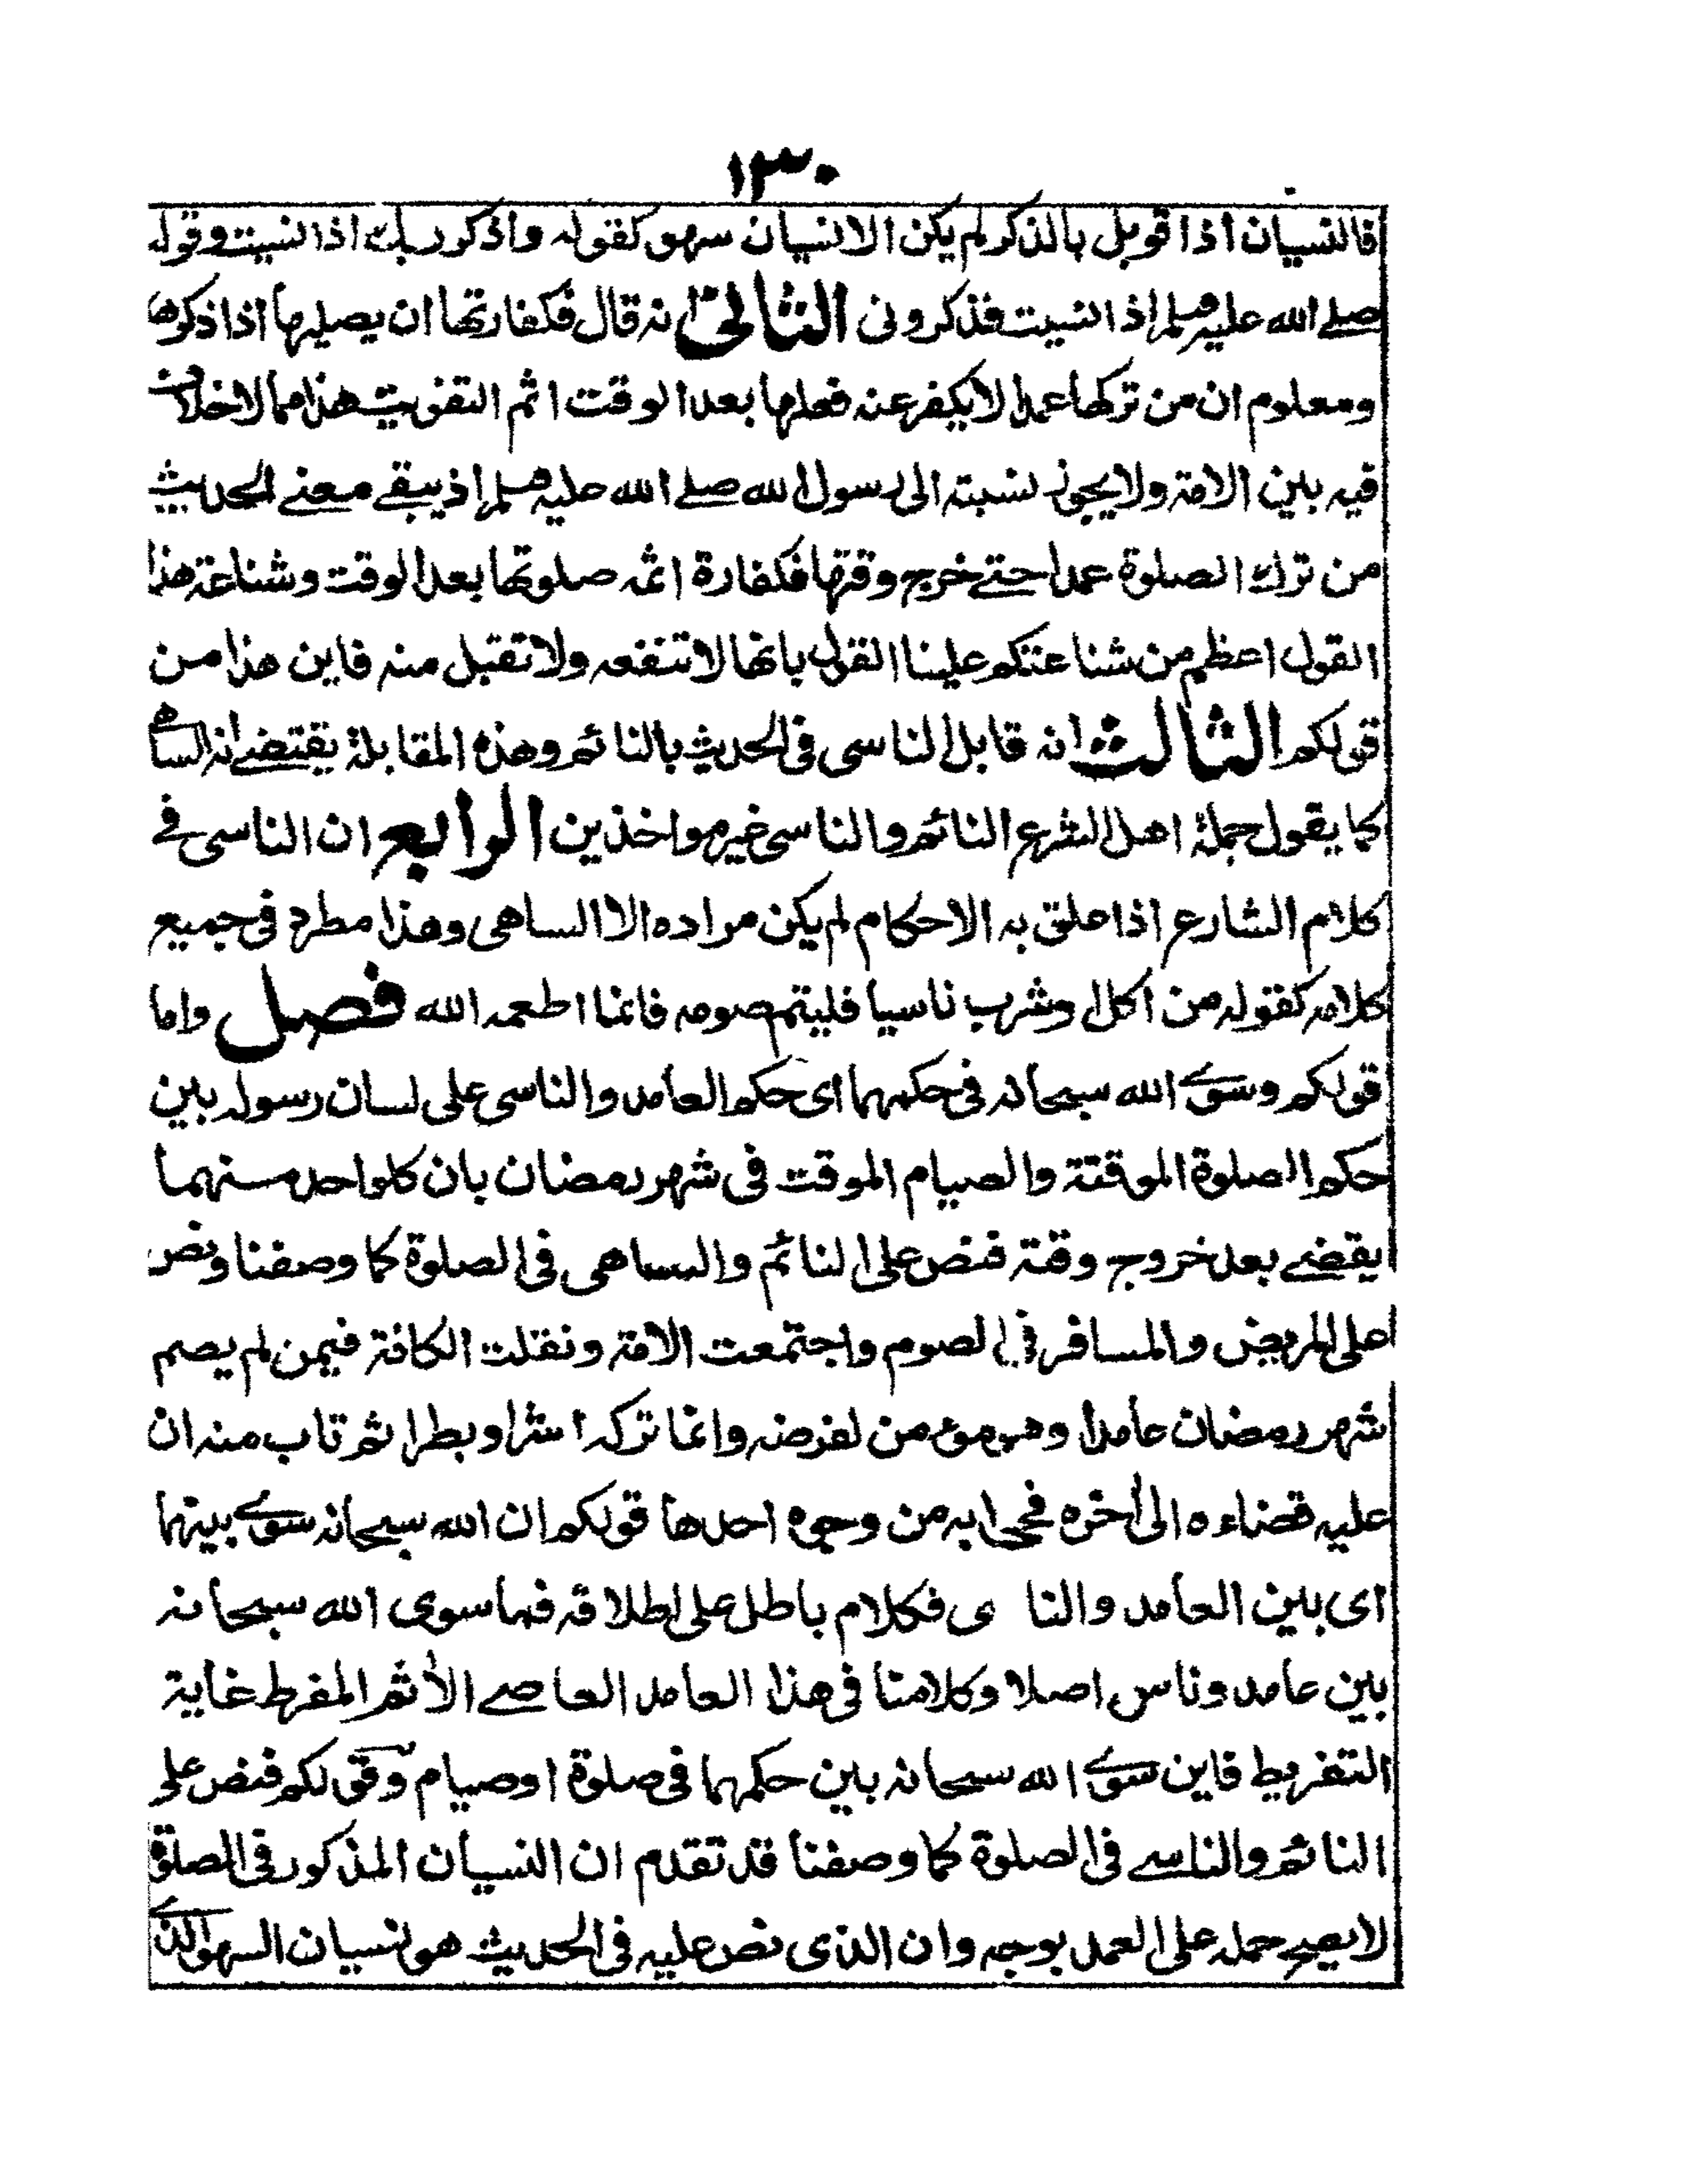 ١٣٠
فالنسيان اذا قوبل بالذكر لم يكن الا نسيان سهو كقوله واذكر ربك اذا نسيت وقوله
صلے الله عليه وسلم اذا نسيت فذكروني الثاني انه قال فكفارتها ان يصليها اذا ذكرها
ومعلوم ان من تركها عمدا لا يكفر عنه فعلها بعد الوقت اثم التفويت هذا مما لا خلاف
فيه بين الامة ولا يجوز نسبته الى رسول الله صلے الله عليه وسلم اذ يبقے معنے الحديث
من ترك الصلوة عمدا حتے خرج وقتها فكفارة اثمه صلوتها بعد الوقت وشناعة هذا
القول اعظم من شناعتكم علينا القول بانها لا تنفعه ولا تقبل منه فاين هذا من
قولكم الثالث انه قابل الناسى فى الحديث بالنائم وهذه المقابلة يقتضے انه الساهى
كما يقول جملة اهل الشرع النائم والناسى غير مواخذين الرابع ان الناسى فے
كلام الشارع اذا علق به الاحكام لم يكن مراده الا الساهى وهذا مطرد فى جميع
كلامه كقوله من اكل وشرب ناسيا فليتم صومه فانما اطعمه الله فصل واما
قولكم وسوے الله سبحانه فى حكمهما اى حكم العامد والناسى على لسان رسوله بين
حكم الصلوة الموقتة والصيام الموقت فى شهر رمضان بان كلواحد منهما
يقضے بعد خروج وقته فنص على النائم والساهى فى الصلوة كما وصفنا ونص
على المريض والمسافر فى الصوم واجتمعت الامة ونقلت الكافة فيمن لم يصم
شهر رمضان عامدا وهو مومن لفرضه وانما تركه اشرا وبطرا ثم تاب منه ان
عليه قضاءه الى أخره فجوابه من وجوه احدها قولكم ان الله سبحانه سوے بينهما
اى بين العامد والنا ى فكلام باطل على اطلاقه فما سوى الله سبحانه
بين عامد وناس اصلا وكلامنا فى هذا العامد العاصے الأثم المفرط غاية
التفريط فاين سوے الله سبحانه بين حكمهما فى صلوة او صيام وقولكم فنص على
النائم والناسے فى الصلوة كما وصفنا قد تقدم ان النسيان المذكور فى الصلوة
لا يصح حمله على العمد بوجه وان الذى نص عليه فى الحديث هو نسيان السهو الذے